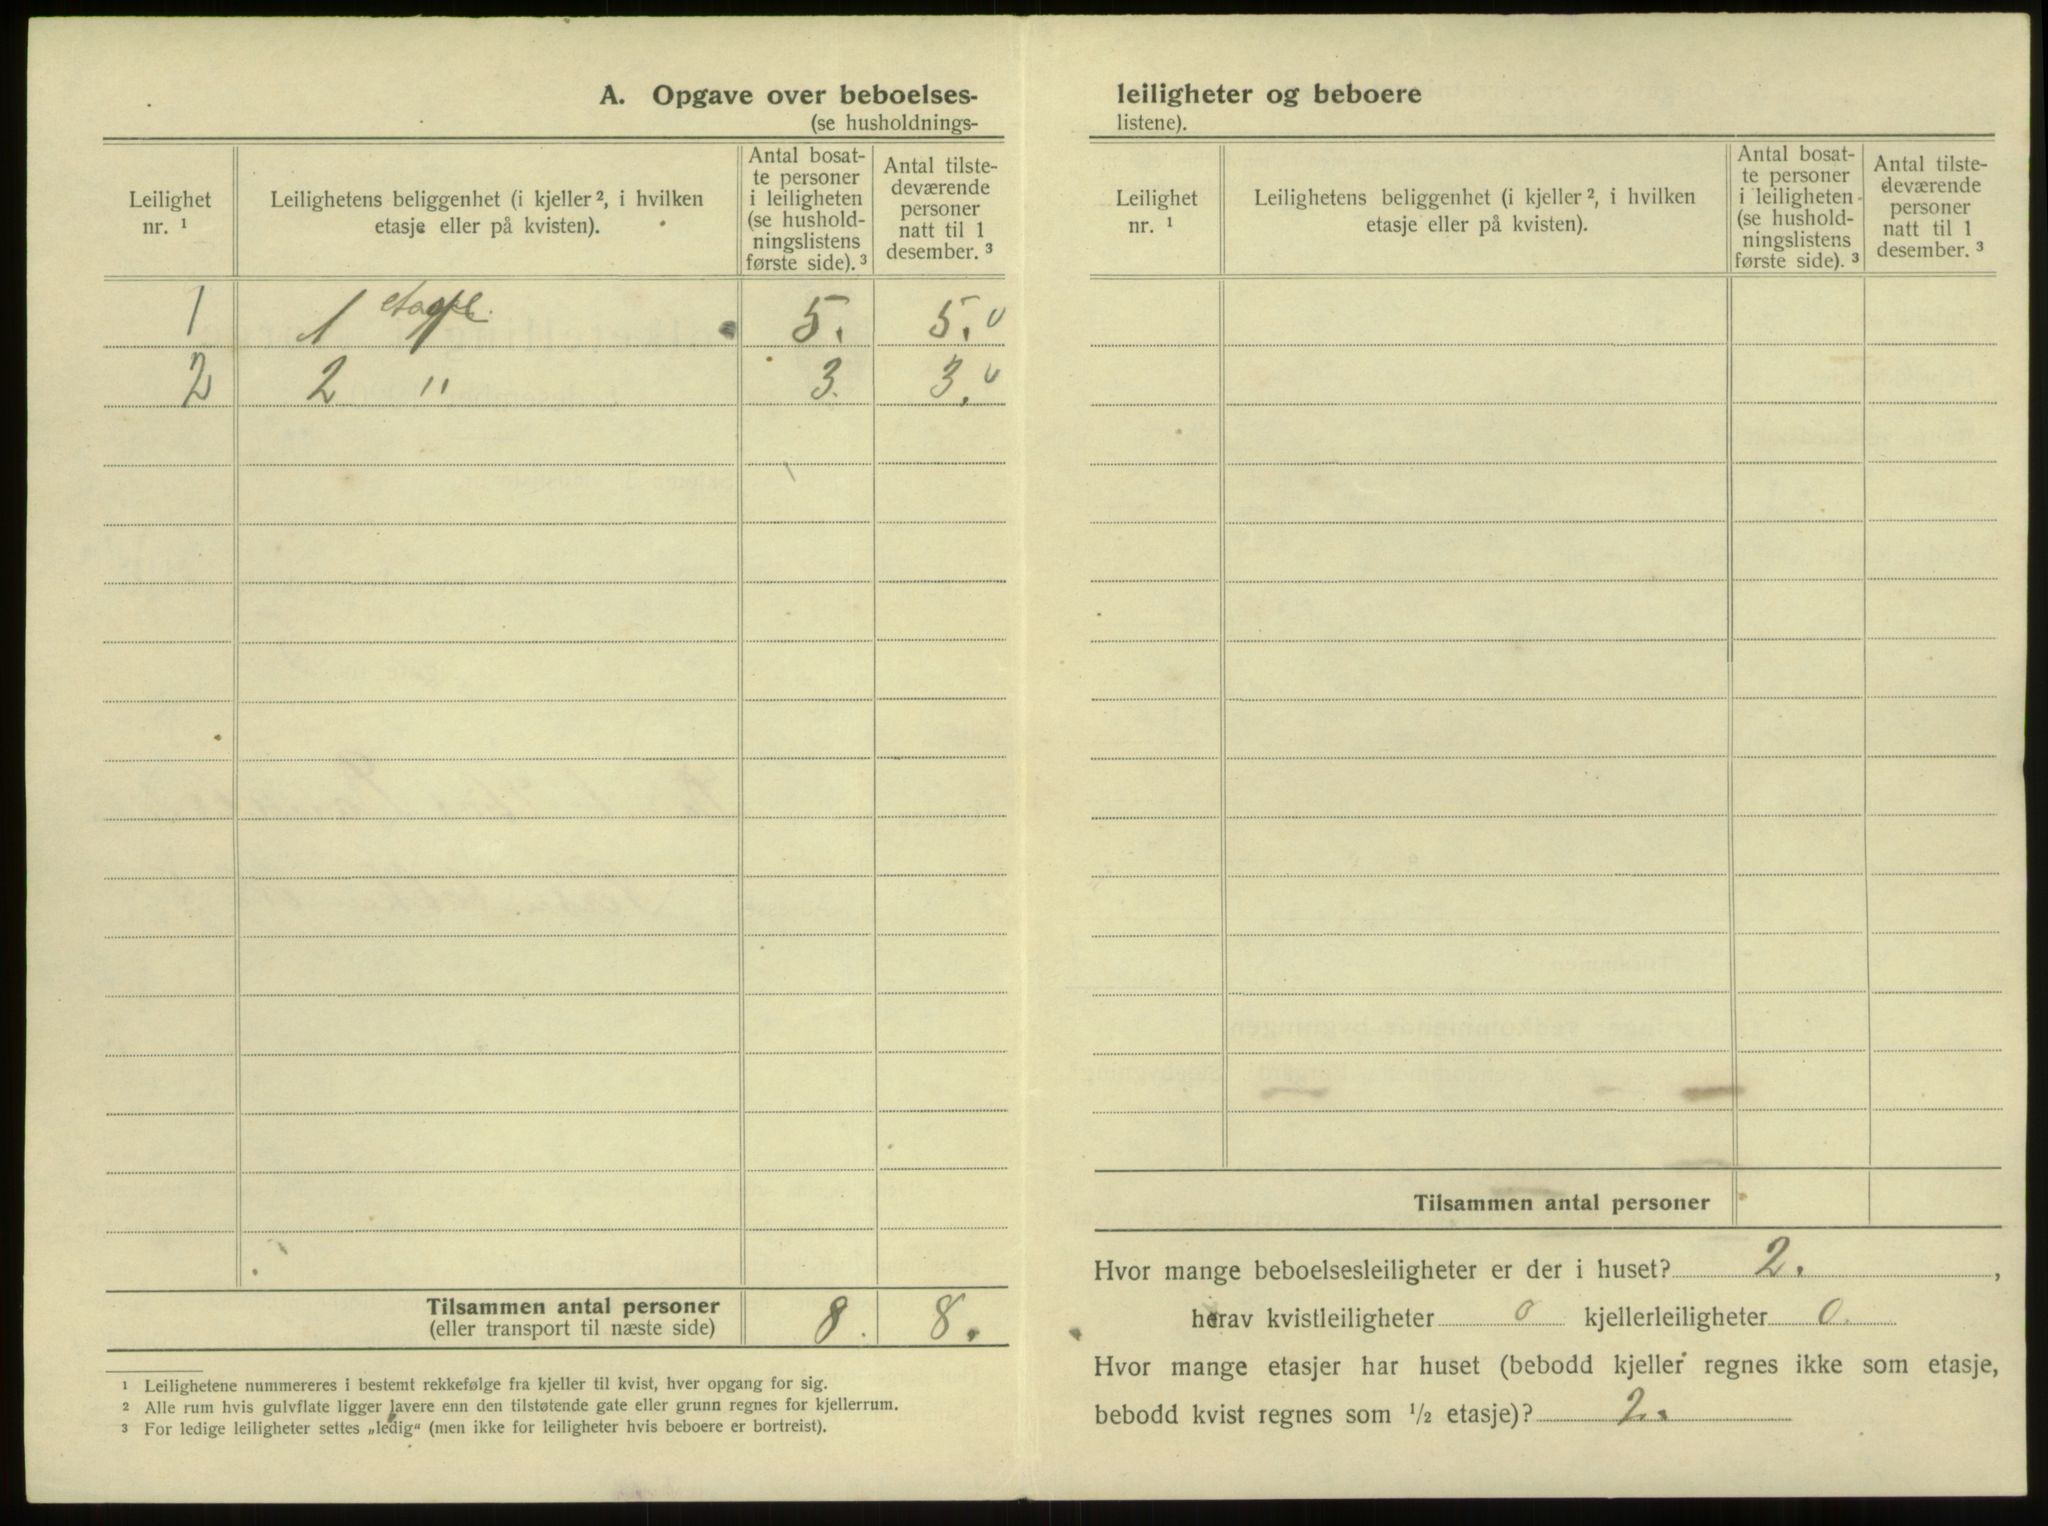 A. Opgave over beboelses-
(se husholdnings-
Leilighet
nr. ¹
Leilighetens beliggenhet (i kjeller ², i hvilken
etasje eller på kvisten).
Antal bosat-
te personer
i leiligheten
(se hushold-
ningslistens
første side). ³
Antal tilste-
deværende
personer
natt til 1
desember. ³
1 1 etage 5. 5.
2 2 " 3. 3.
Tilsammen antal personer 8. 8.
(eller transport til næste side)
¹ Leilighetene nummereres i bestemt rekkefølge fra kjeller til kvist, hver opgang for sig.
² Alle rum hvis gulvflate ligger lavere enn den tilstøtende gate eller grunn regnes for kjellerrum.
³ For ledige leiligheter settes „ledig“ (men ikke for leiligheter hvis beboere er bortreist).
leiligheter og beboere
listene).
Leilighet
nr. ¹
Leilighetens beliggenhet (i kjeller ², i hvilken
etasje eller på kvisten).
Antal bosat-
te personer
i leiligheten
(se hushold-
ningslistens
første side). ³
Antal tilste-
deværende
personer
natt til 1
desember. ³
Tilsammen antal personer
Hvor mange beboelsesleiligheter er der i huset? 2. ,
herav kvistleiligheter 0 kjellerleiligheter 0.
Hvor mange etasjer har huset (bebodd kjeller regnes ikke som etasje,
bebodd kvist regnes som ½ etasje)? 2.